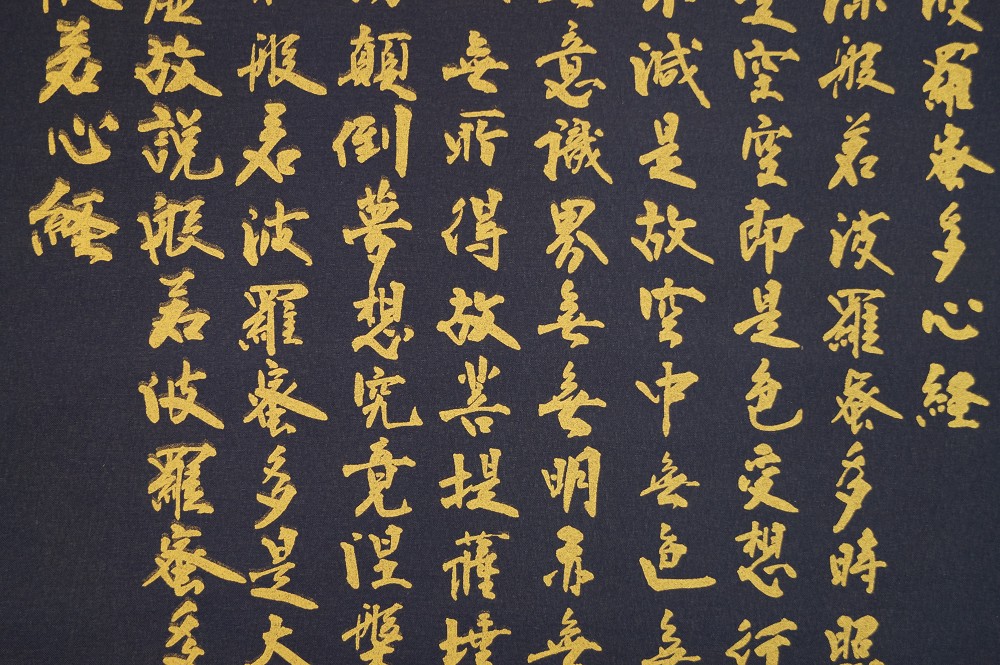 波羅蜜多心経
深般若波羅蜜多時照
空空即是色受想行
減是故空中無色無
意識界無無明亦無
無所得故菩提薩埵
顛倒夢想究竟涅槃
般若波羅蜜多是大
虚故説般若波羅蜜多
若心経